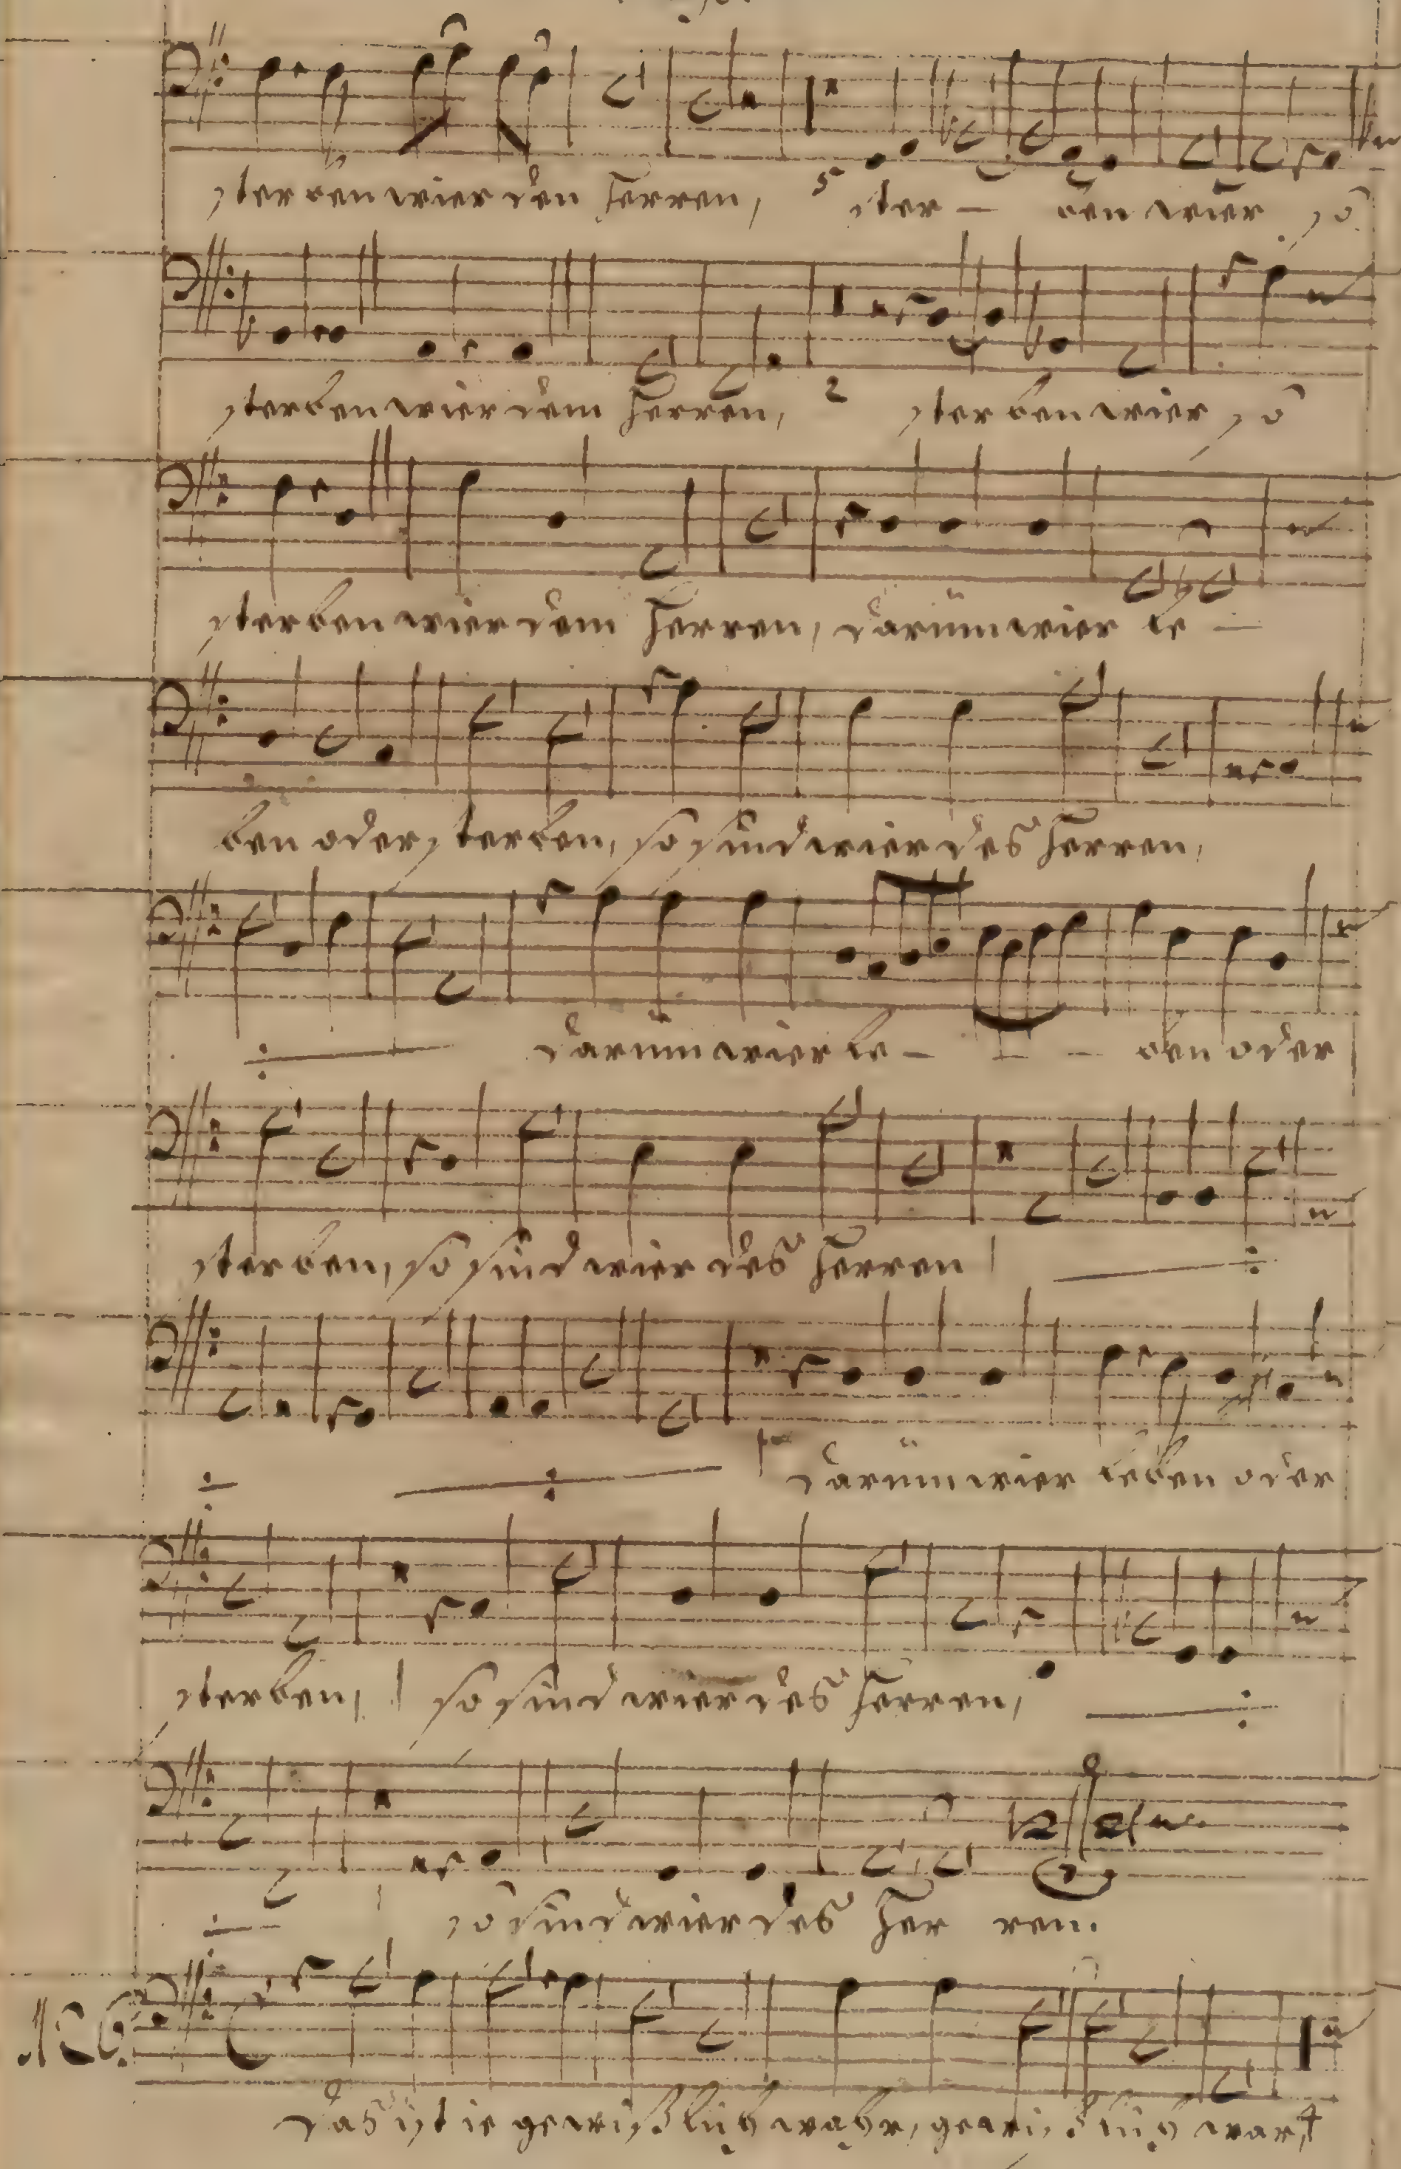 sterben wier den Herren, 5 ster – ben wier, so
sterben wier dem Herren, 2 sterben wier, so
sterben wier dem Herren, darüm wier le –
ben oder sterben, so sind wier des Herren,
darüm wier le – – – ben oder
sterben, so sind wier des Herren
darüm wier leben oder
sterben, so sind wier des Herren,
so sind wier des Her ren.
126.
Das ist ie gewißlich wahr, gewißlich war, 4